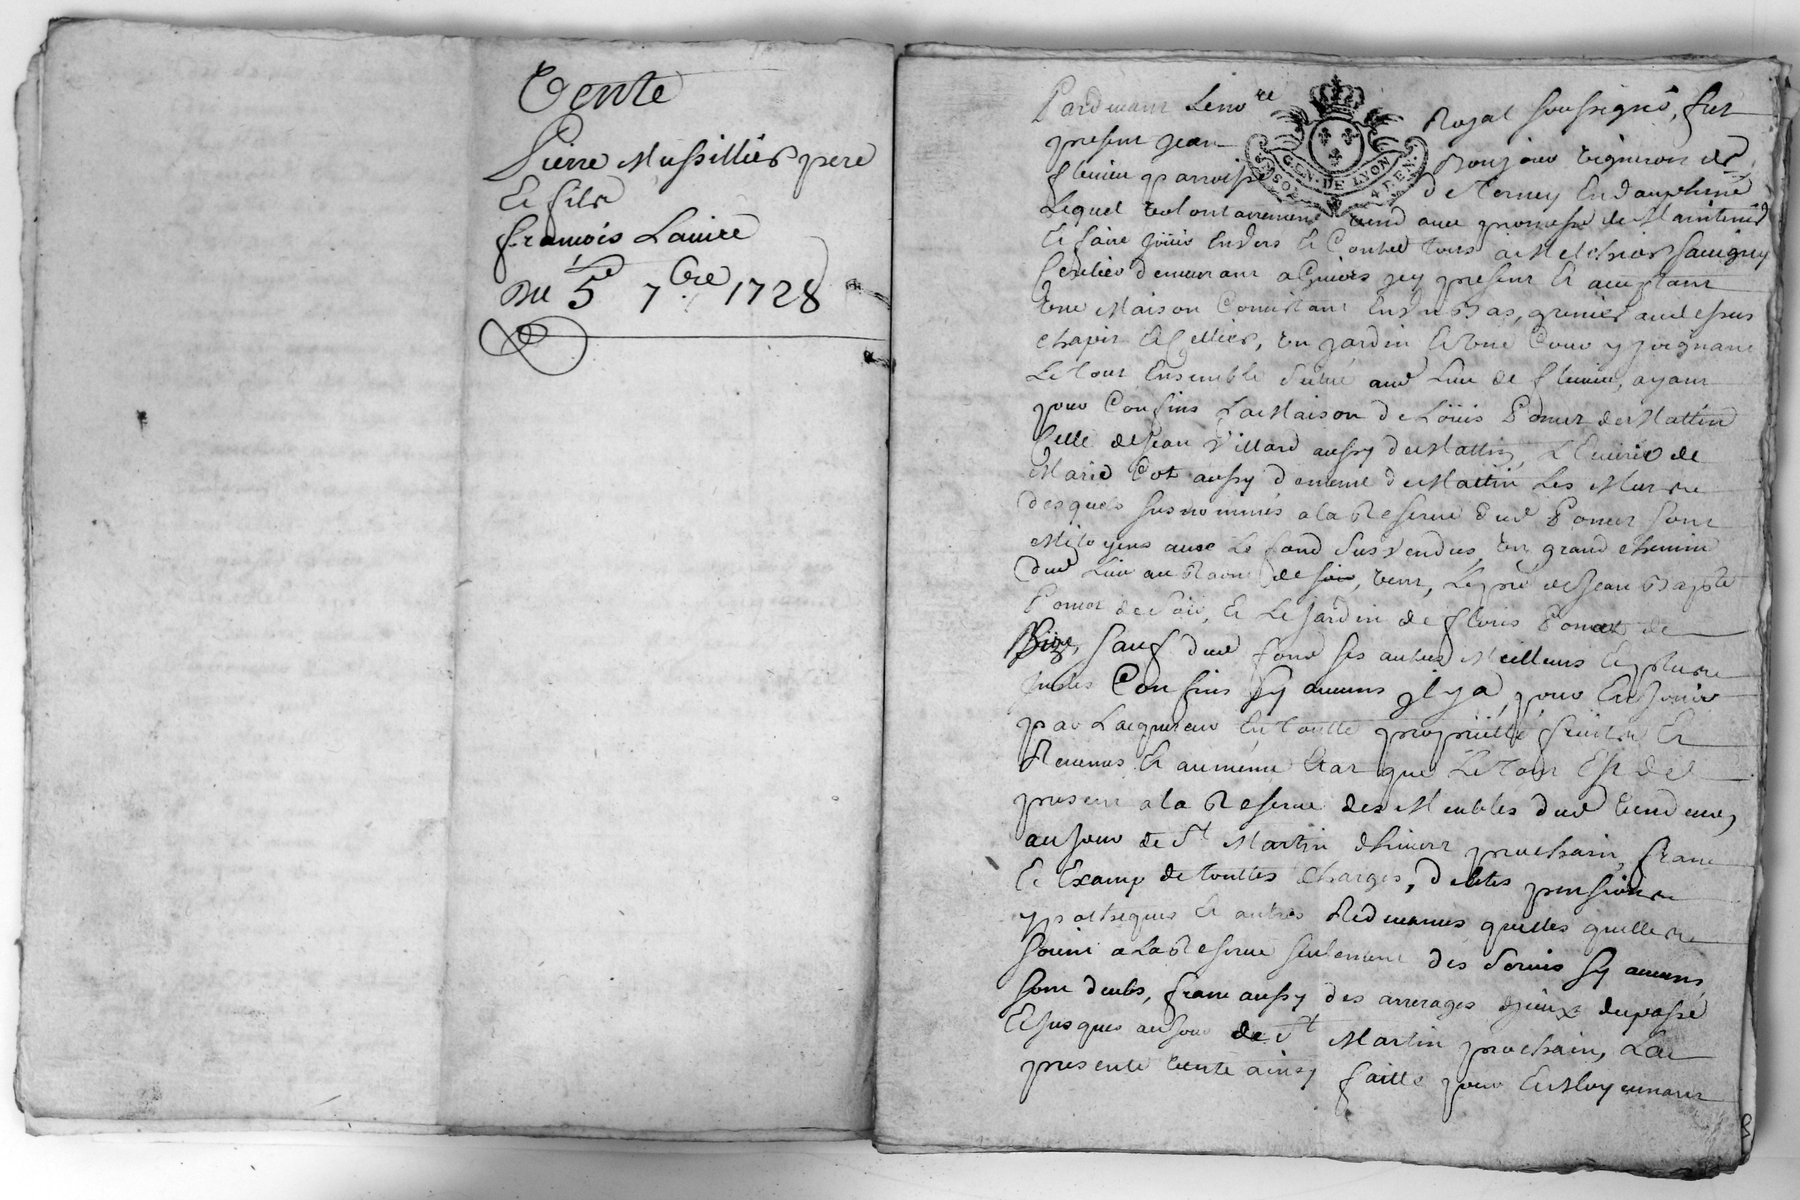 Vente
Pierre Mussillier pere
Et fils
françois Lauire
Du 5e 7bre 1728
Pardevant Le nore Royal soussigné, fut
present Jean Bonjour vigneron de
flevieu parroisse de Terney En dauphiné
Lequel volontairement vend avec promesse de Maintenir
Et faire jouir Envers Et Contre tous a Melchior Sauigny
demeurant a Givors icy present Et acceptant
Une Maison Consistant En un Bas, grenier au dessus
chapit Et Cellier, un jardin Et une Cour y joignant
Le tout Ensemble Situé aud Lieu de flevieu, ayant
pour Confins La Maison de Loüis Pomet de Mattin
Celle de Jean Villard aussy de Mattin, L'Ecurie de
Marie Cot aussy de Mattin Les Murs
desquels susnommés a la Reserve dud Pomet sont
Mitoyens avec Le fond susvendus, un grand chemin
dud Lieu au de soir, vent, Le pré de Jean Bapte
Pomet de soir, Et Le jardin de floris Pomet de
Bize, sauf dud fond ses autres Meilleurs Et plus
justes Confins sy aucuns Il y a, pour En jouir
par Lacquereur En toutte proprietté fruits Et
Revenus Et au même Etat que Le tout Est de
present a la Reserve des Meubles dud vendeur,
au jour de St Martin d'hiver prochain, franc
Et Examp de touttes Charges, debtes pensions
ypotheques Et autres Redevances quelles quelle
soient a La Reserve seulement des Servis sy aucuns
sont deubs, franc aussy des arrerages d'iceux du passé
Et jusques au jour de St Martin prochain, La
presente vente ainsy faitte pour Et Moyennant
GEN. DE LYON
4 DEN.